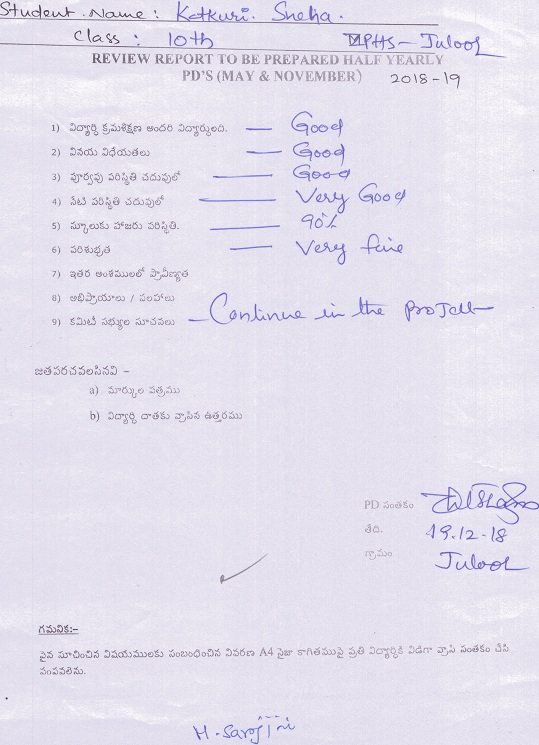 Student Name : Katkuri. Sneha.
Class : 10th ZPHS - Julool
REVIEW REPORT TO BE PREPARED HALF YEARLY
PD'S (MAY & NOVEMBER) 2018-19
1) విద్యార్థి క్రమశిక్షణ అందరి విద్యార్థులది. — Good
2) వినయ విధేయతలు — Good
3) పూర్వపు పరిస్థితి చదువులో — Good
4) నేటి పరిస్థితి చదువులో — Very Good
5) స్కూలుకు హాజరు పరిస్థితి. — 90%
6) పరిశుభ్రత — Very fine
7) ఇతర అంశములలో ప్రావీణ్యత
8) అభిప్రాయాలు / సలహాలు
9) కమిటీ సభ్యుల సూచనలు — Continue in the project
జతపరచవలసినవి –
a) మార్కుల పత్రము
b) విద్యార్థి దాతకు వ్రాసిన ఉత్తరము
PD సంతకం
తేది. 19.12-18
గ్రామం Julool
గమనిక:–
పైన సూచించిన విషయములకు సంబంధించిన వివరణ A4 సైజు కాగితముపై ప్రతి విద్యార్థికి విడిగా వ్రాసి సంతకం చేసి
పంపవలెను.
M. Sarojini